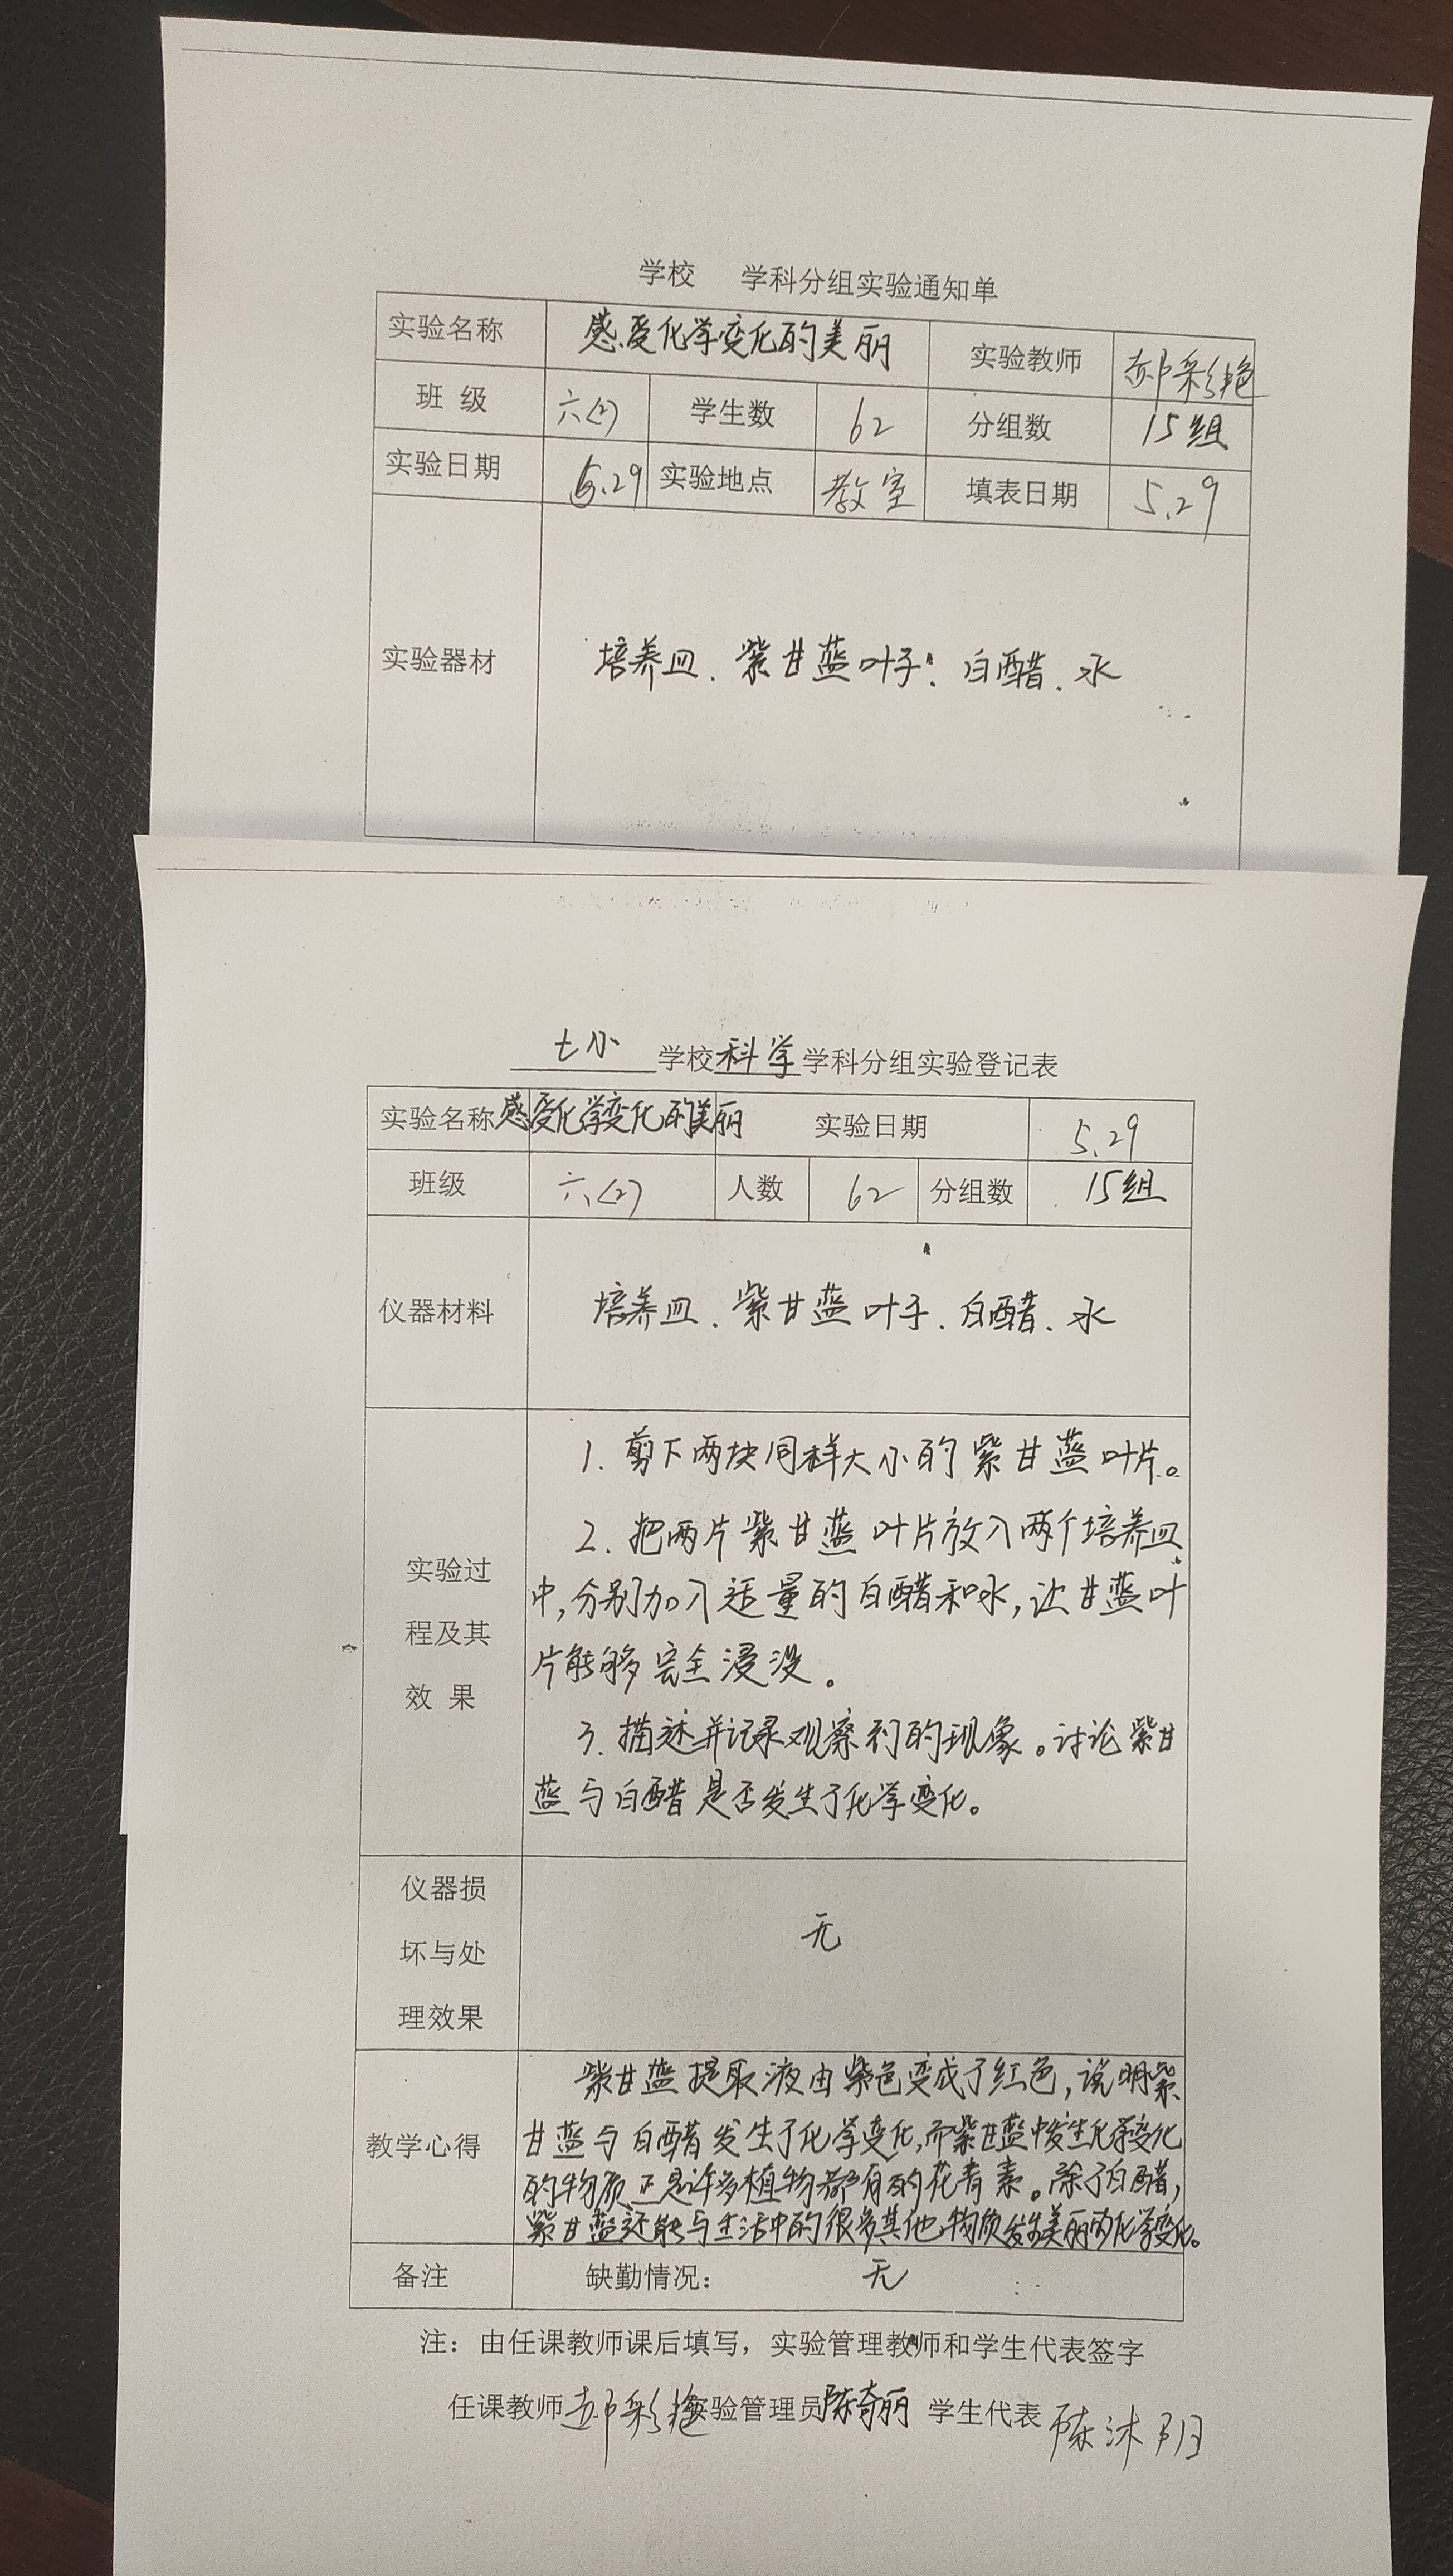 学校 学科分组实验通知单
实验名称 感受化学变化的美丽 实验教师 郝彩艳
班 级 六(2) 学生数 62 分组数 15组
实验日期 5.29 实验地点 教室 填表日期 5.29
实验器材 培养皿、紫甘蓝叶子、白醋、水
七小 学校 科学 学科分组实验登记表
实验名称 感受化学变化的美丽 实验日期 5.29
班级 六(2) 人数 62 分组数 15组
仪器材料 培养皿、紫甘蓝叶子、白醋、水
实验过
程及其
效 果
1. 剪下两块同样大小的紫甘蓝叶片。
2. 把两片紫甘蓝叶片放入两个培养皿
中,分别加入适量的白醋和水,让甘蓝叶
片能够完全浸没。
3. 描述并记录观察到的现象。讨论紫甘
蓝与白醋是否发生了化学变化。
仪器损
坏与处
理效果
无
教学心得
紫甘蓝提取液由紫色变成了红色,说明紫
甘蓝与白醋发生了化学变化,而紫甘蓝中发生化学变化
的物质正是许多植物都有的花青素。除了白醋,
紫甘蓝还能与生活中的很多其他物质发生美丽的化学变化。
备注 缺勤情况: 无
注:由任课教师课后填写,实验管理教师和学生代表签字
任课教师 郝彩艳 实验管理员 陈奇丽 学生代表 陈沐阳